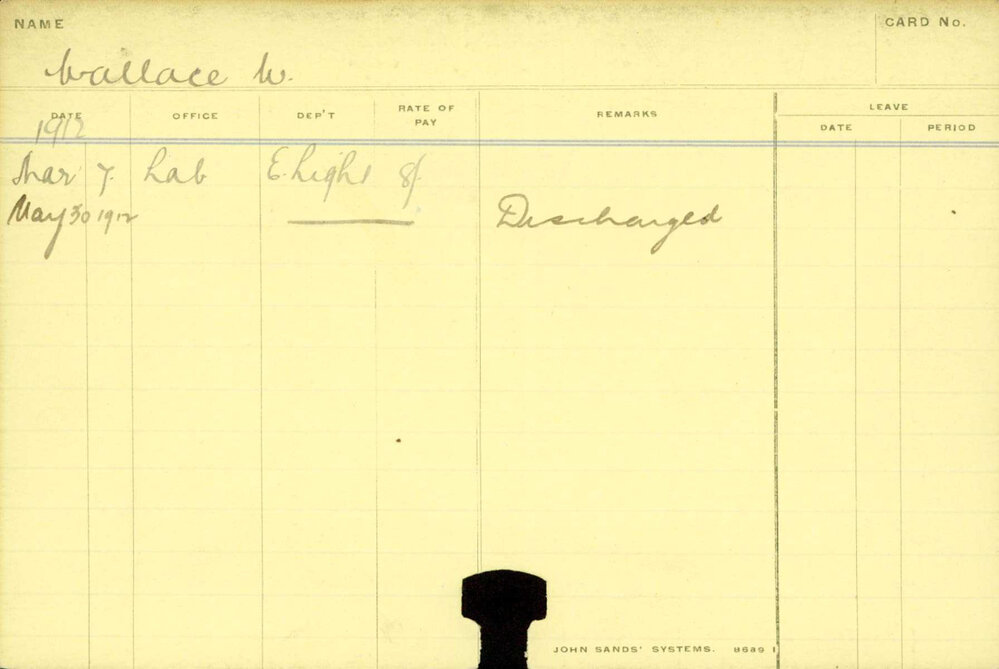 NAME
CARD No.
Wallace W.
DATE OFFICE DEP'T RATE OF PAY REMARKS LEAVE
DATE PERIOD
1912
Mar 7. Lab E. Light 8/.
May 30 1912 Discharged
JOHN SANDS' SYSTEMS. 8689 1